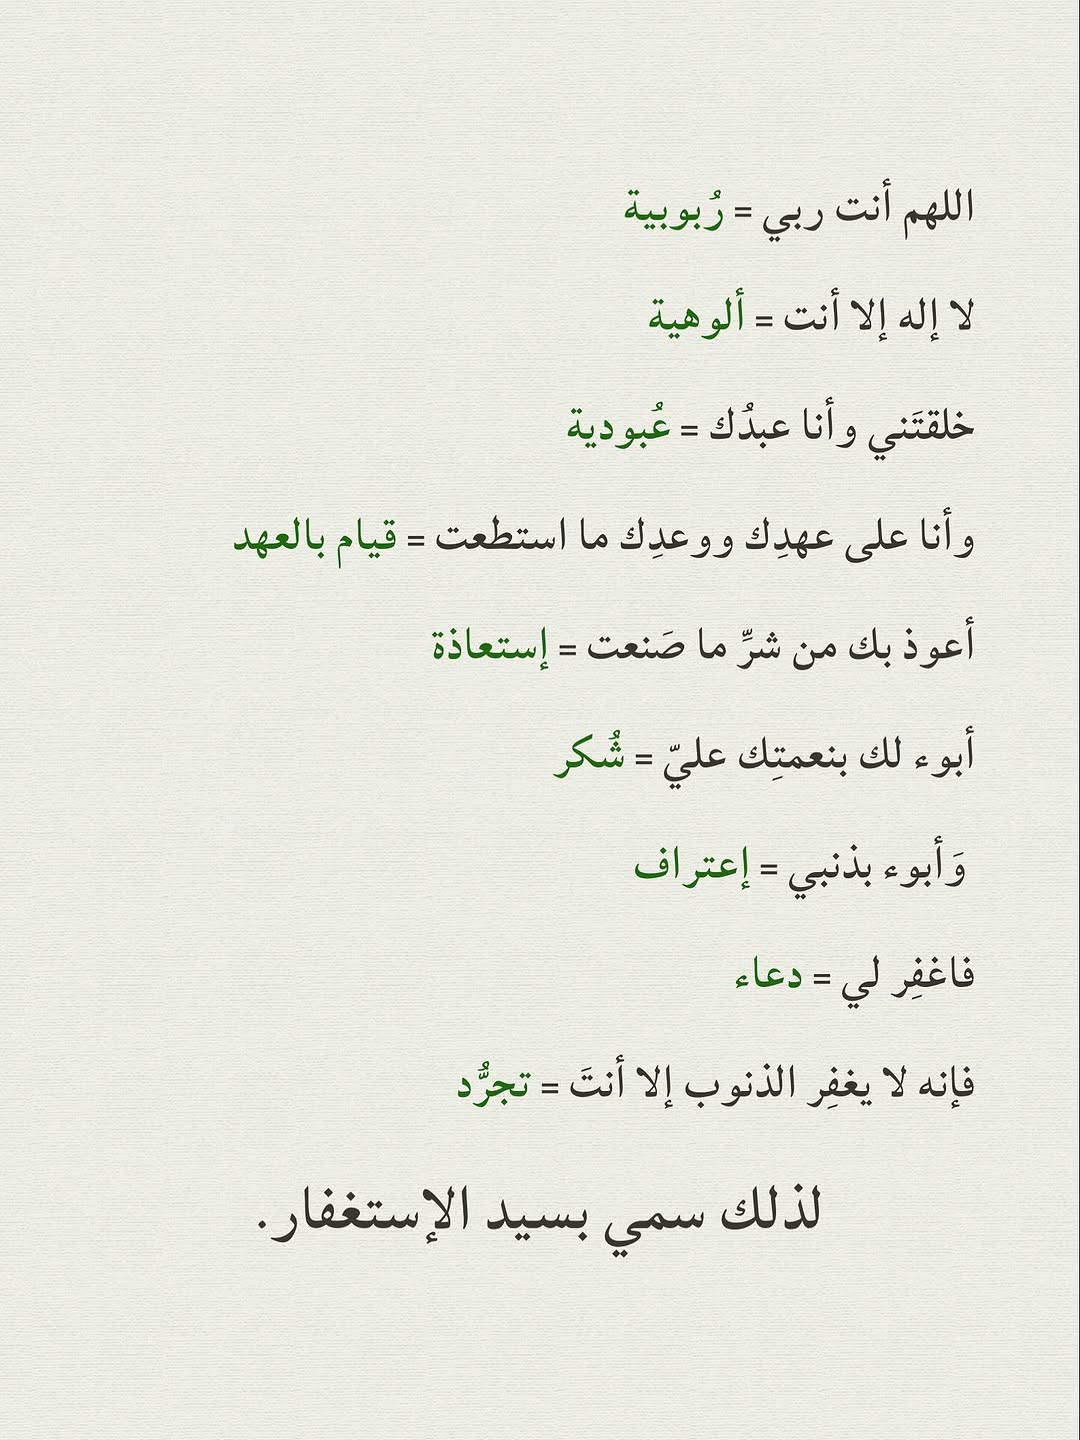 اللهم أنت ربي = رُبوبية
لا إله إلا أنت = ألوهية
خلقتَني وأنا عبدُك = عُبودية
وأنا على عهدِك ووعدِك ما استطعت = قيام بالعهد
أعوذ بك من شرِّ ما صَنعت = إستعاذة
أبوء لك بنعمتِك عليّ = شُكر
وَأبوء بذنبي = إعتراف
فاغفِر لي = دعاء
فإنه لا يغفِر الذنوب إلا أنتَ = تجرُّد
لذلك سمي بسيد الإستغفار.